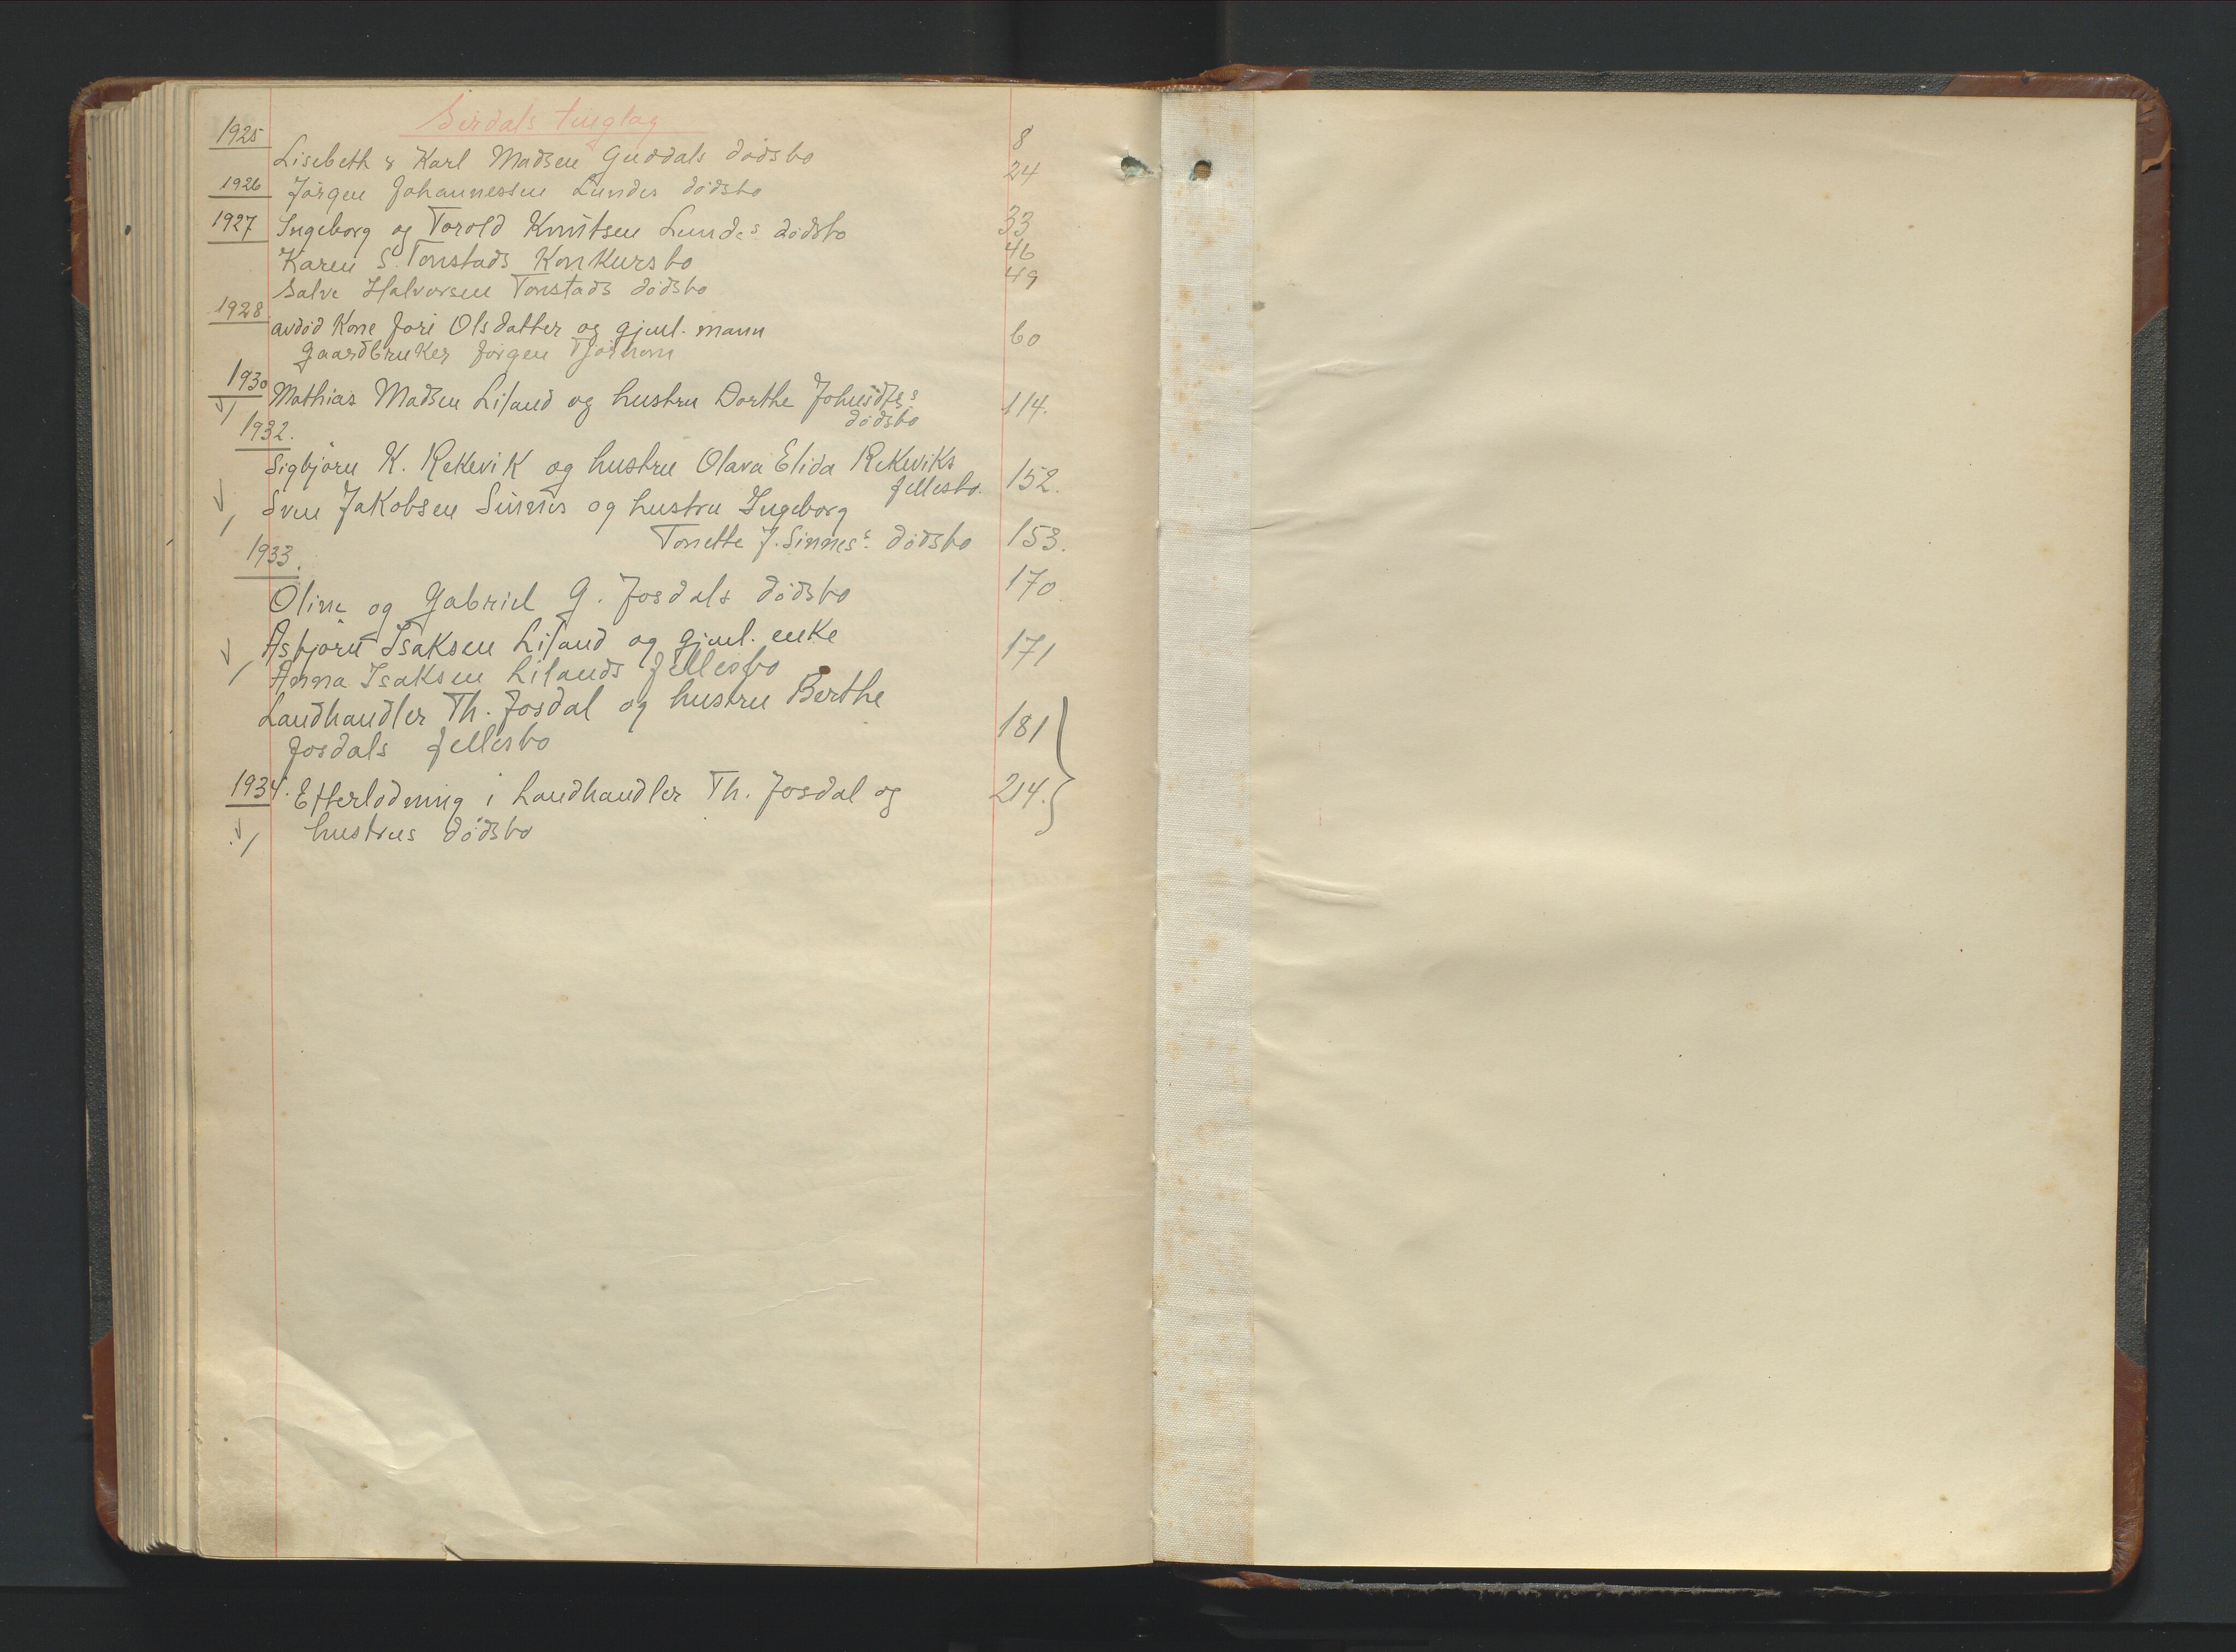 Sirdals tinglag
1925 8
Lisebeth & Karl Madsen Guddals dødsbo 24
1926 Jørgen Johannessen Lundes dødsbo
1927 Ingeborg og Torold Knutsen Lundes dødsbo 33
Karen S. Tonstads Konkursbo 46
Salve Halvorsen Tonstads dødsbo 49
1928 avdød Kone Jori Olsdatter og gjenl. mann 60
Gaardbruker Jørgen Tjørhom
1930 Mathias Madsen Liland og hustru Dorthe Johnsdtrs 114.
dødsbo
1932.
Sigbjørn K. Rekevik og hustru Olava Elida Rekeviks
fellesbo. 152.
Sven Jakobsen Sinnes og hustru Ingeborg
Tonette J. Sinnes' dødsbo 153.
1933.
Oline og Gabriel G. Josdals dødsbo 170.
Asbjørn Isaksen Liland og gjenl. enke 171
Anna Isaksen Lilands fellesbo
Landhandler Th. Josdal og hustru Berthe
Josdals fellesbo 181
1934. Efterlodning i Landhandler Th. Josdal og 214.
hustrus dødsbo